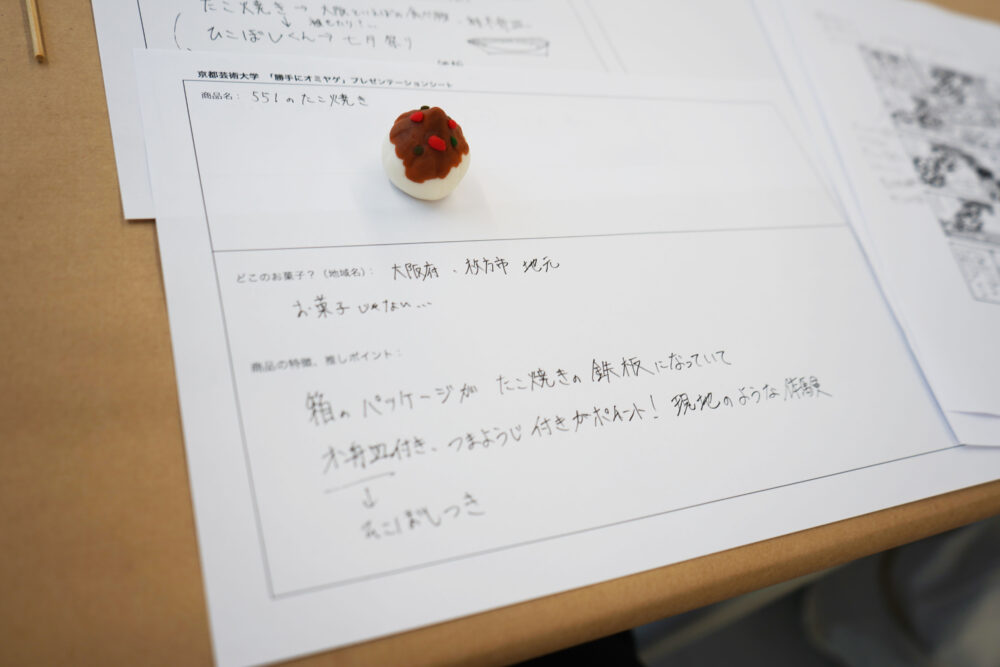 たこ焼き→大阪といえばの食べ物
ひこぼしくん→七夕祭り
京都芸術大学 「勝手にオミヤゲ」プレゼンテーションシート
商品名: 551のたこ焼き
どこのお菓子?(地域名): 大阪府、枚方市 地元
お菓子じゃない…
商品の特徴、推しポイント:
箱のパッケージが たこ焼きの鉄板になっていて
木舟皿付き、つまようじ付きがポイント! 現地のような体験
↓
ひこぼしつき